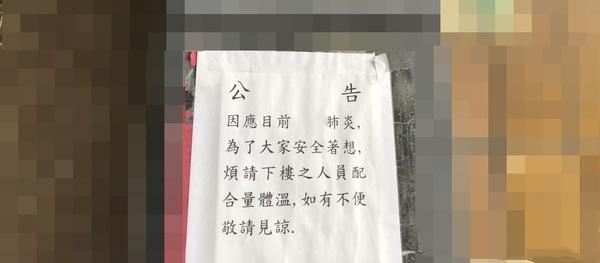 公 告
因應目前 肺炎,
為了大家安全著想,
煩請下樓之人員配
合量體溫,如有不便
敬請見諒.